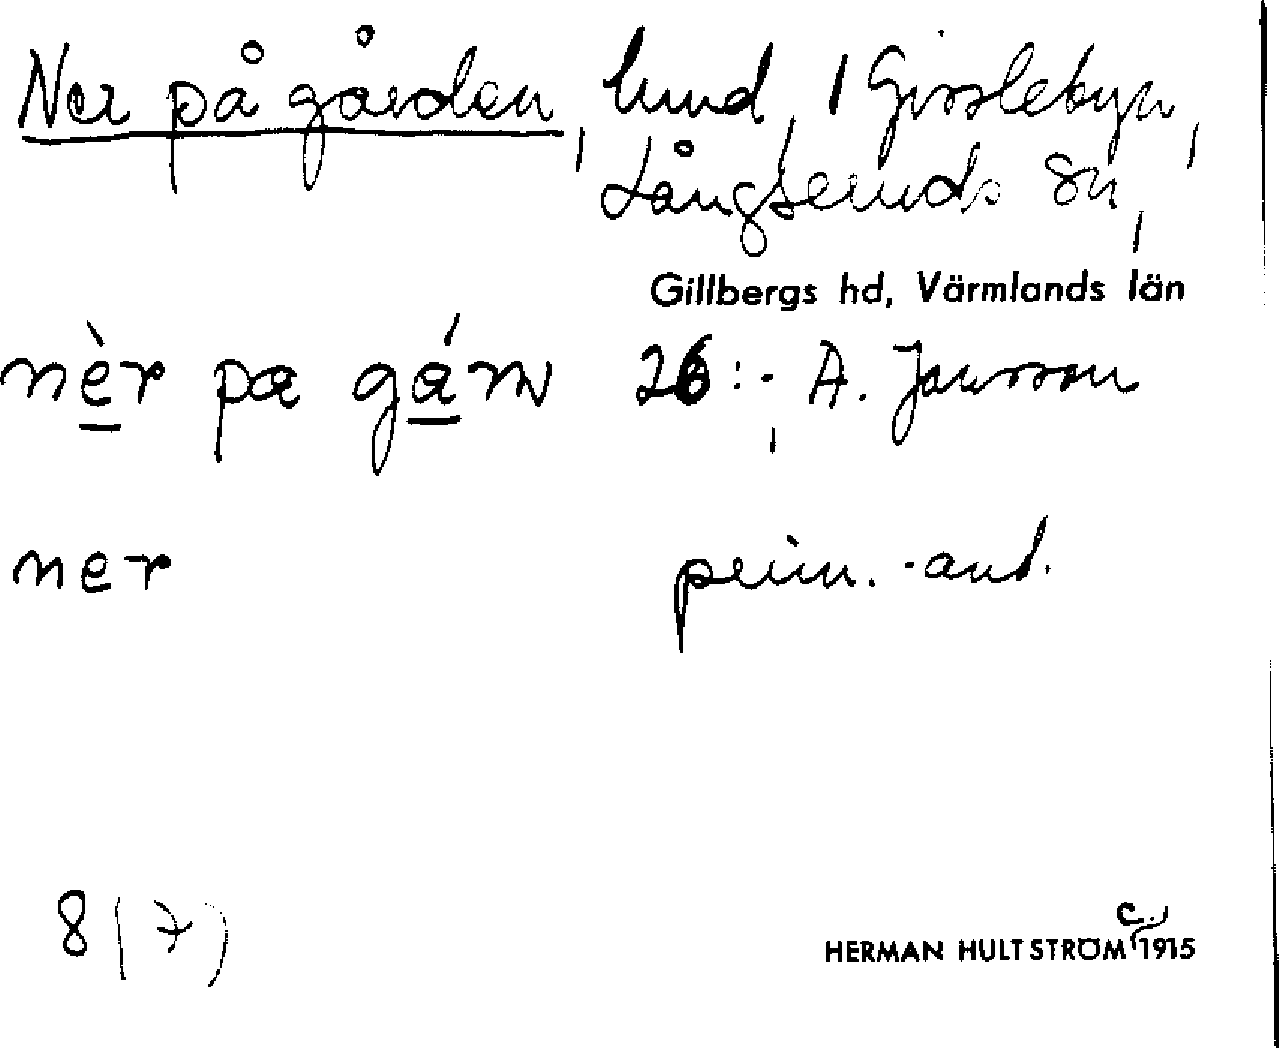 Ner på gården, lund, i Gisslebyn,
Långseruds sn,
Gillbergs hd, Värmlands län
nèr pa gán 26:- A. Jansson
ner prim.-ant.
8 (7)
HERMAN HULTSTRÖM c. 1915